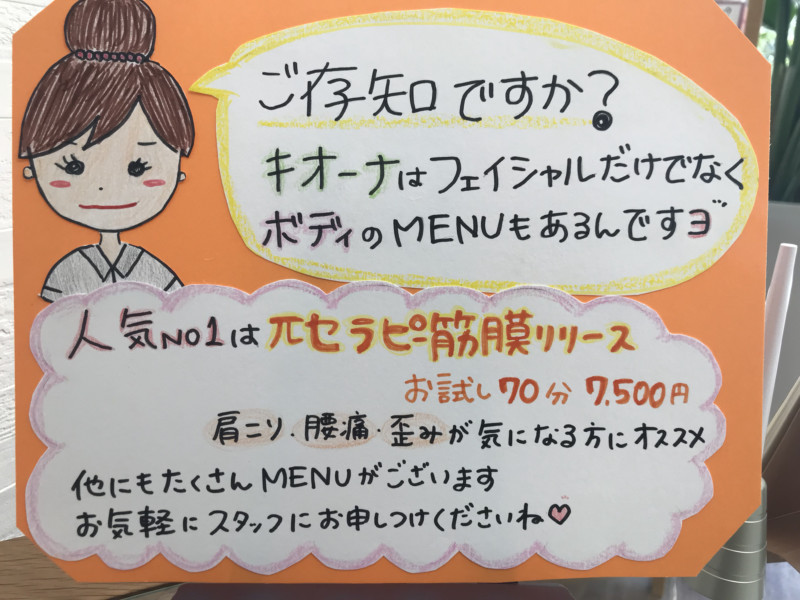 ご存知ですか?
キオーナはフェイシャルだけでなく
ボディのMENUもあるんですヨ
人気NO1は πセラピー筋膜リリース
お試し 70分 7,500円
肩こり・腰痛・歪みが気になる方にオススメ
他にもたくさんMENUがございます
お気軽にスタッフにお申しつけくださいね♡